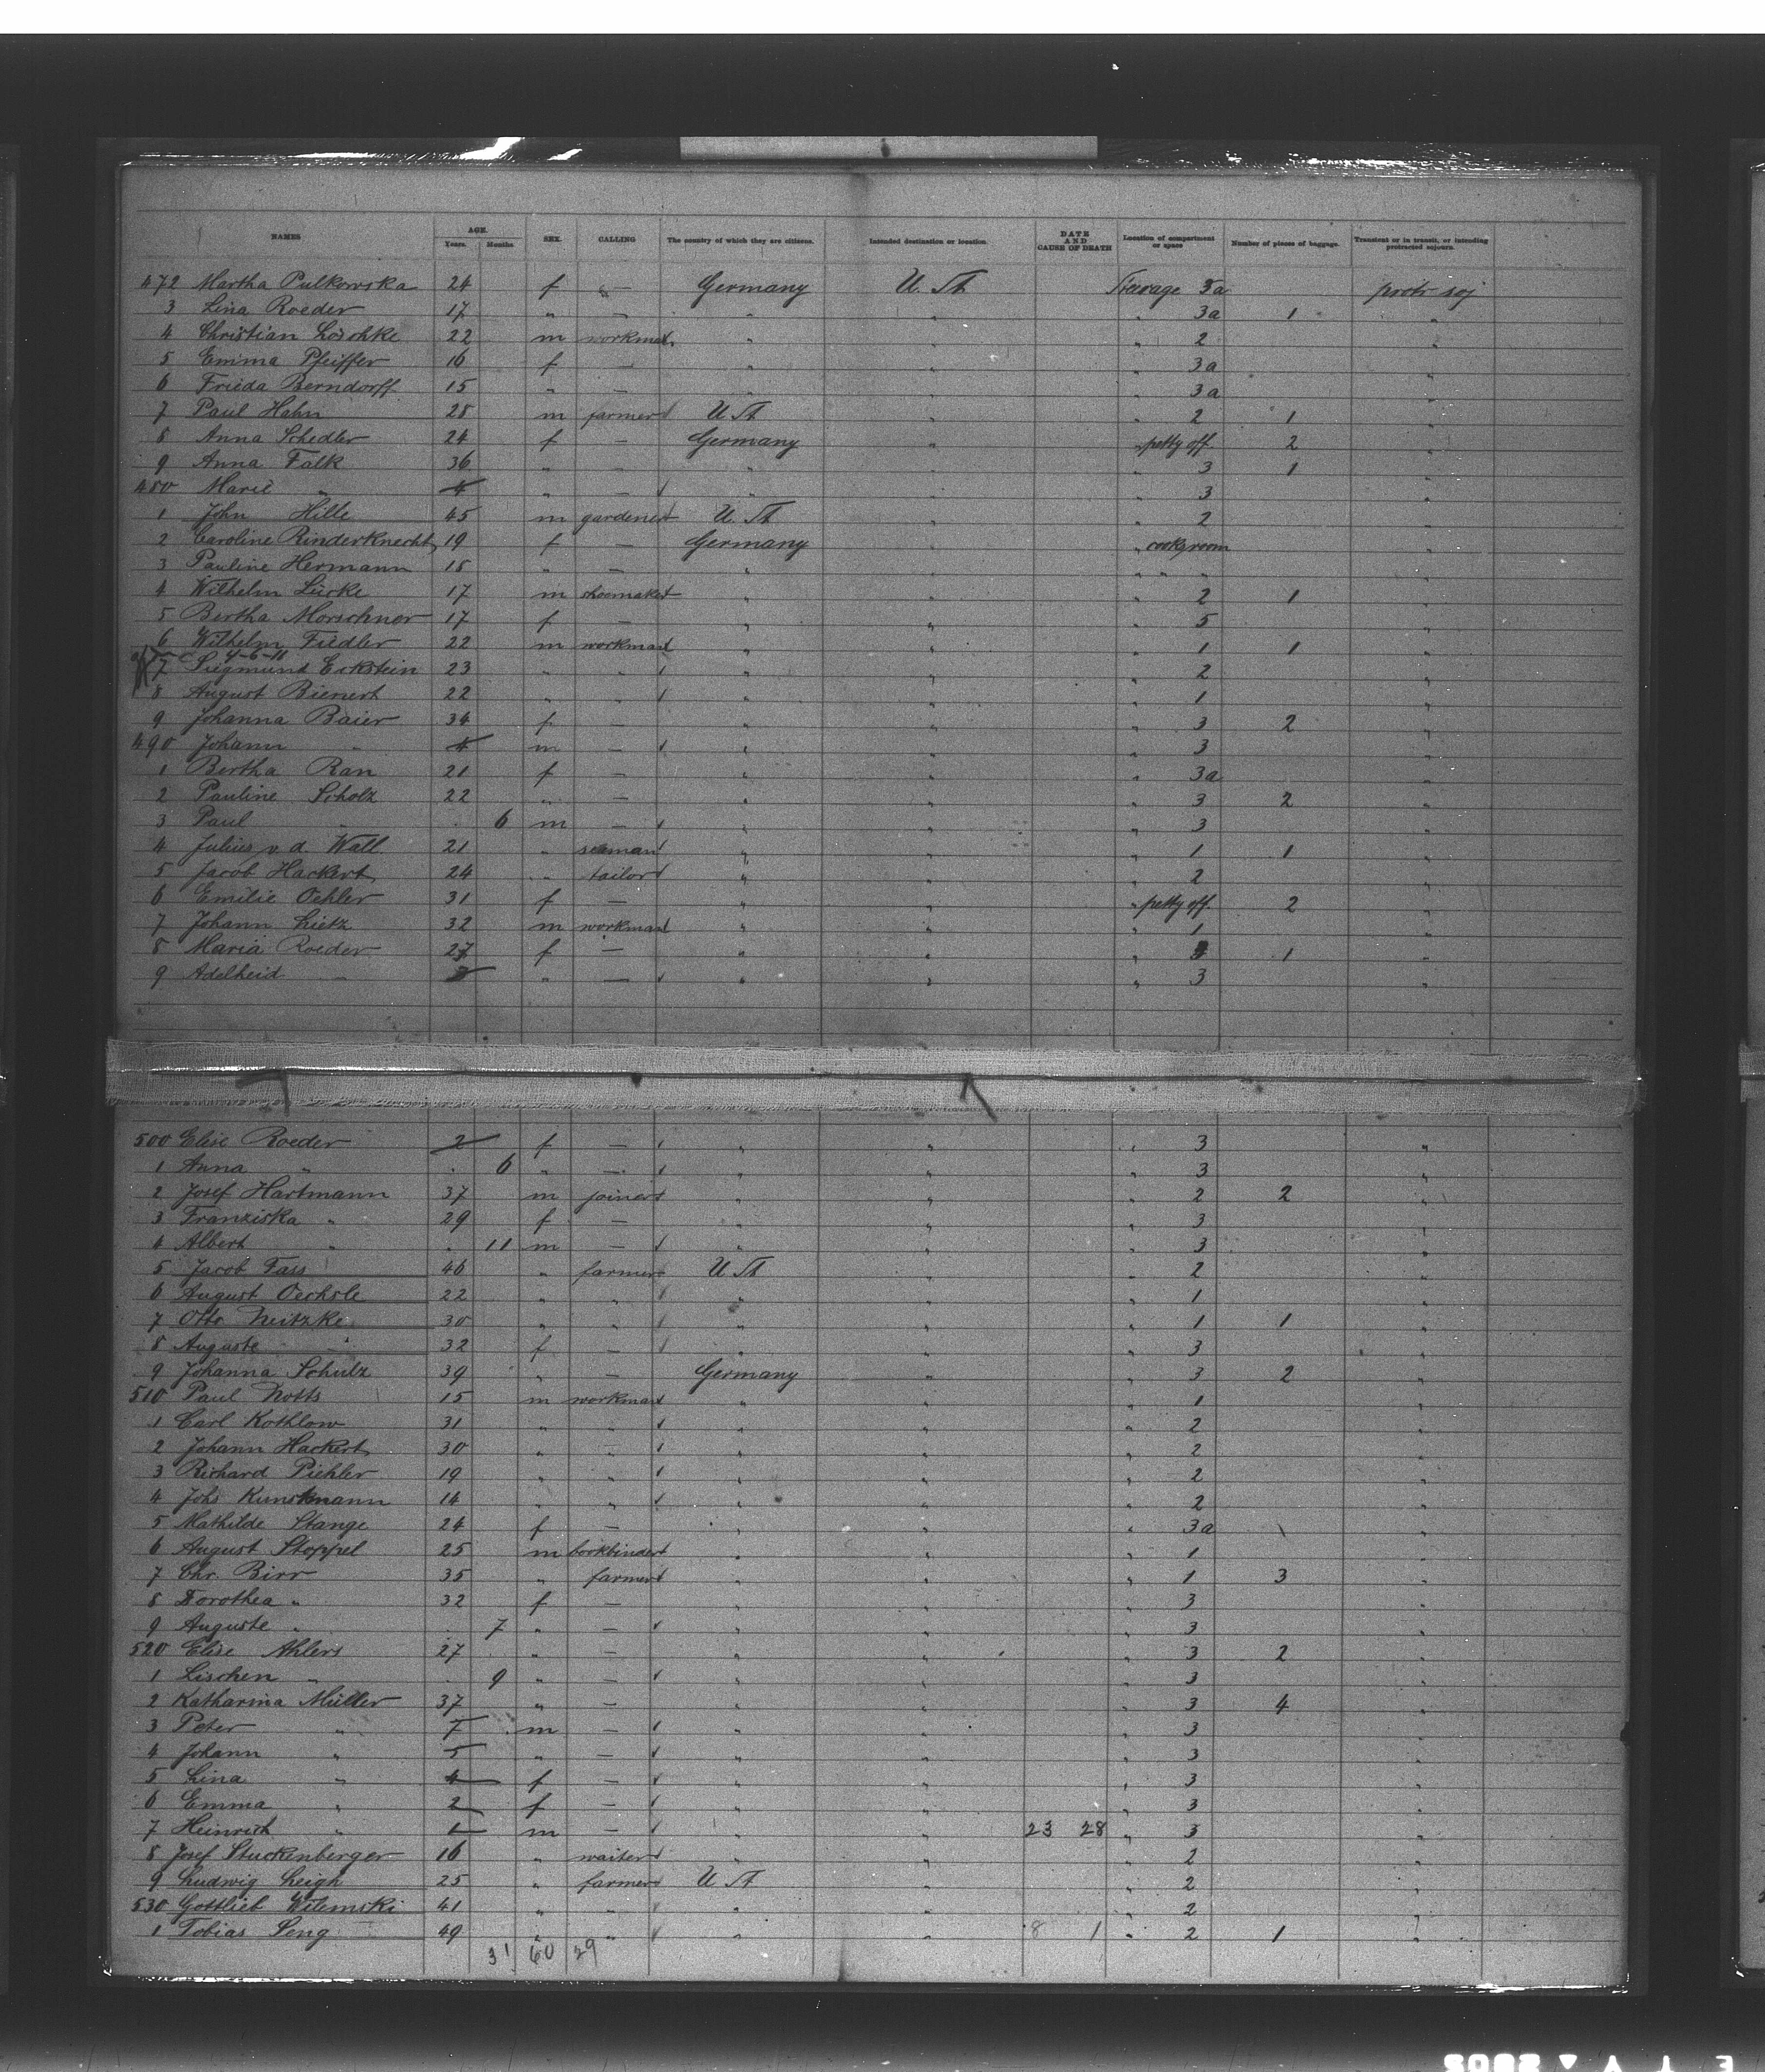 NAMES AGE. Years. Months SEX. CALLING The country of which they are citizens. Intended destination or location. DATE AND CAUSE OF DEATH Location of compartment or space Number of pieces of baggage. Transient or in transit, or intending protracted sojourn.
472 Martha Pulkowska 24 f — Germany U. St. Steerage 3a protr soj
3 Lina Roeder 17 " — " " " 3a 1 "
4 Christian 22 m workman " " " 2 "
5 Emma Pfeiffer 16 f — " " " 3a "
6 Frieda Berndorff 15 " — " " " 3a "
7 Paul Hahn 28 m farmer U St " " 2 1 "
8 Anna Schedler 24 f — Germany " " petty off. 2 "
9 Anna Falk 36 " — " " " 3 1 "
480 Marie " 4 " — " " " 3 "
1 John Hille 45 m gardener U. St " " 2 "
2 Caroline Rinderknecht 19 f — Germany " " cooksroom "
3 Pauline Hermann 18 " — " " " " "
4 Wilhelm Lücke 17 m shoemaker " " " 2 1 "
5 Bertha Morschner 17 f — " " " 5 "
6 Wilhelm Fiedler 22 m workman " " " 1 1 "
4-6-11
7 Siegmund Eckstein 23 " " " " " 2 "
8 August Bienert 22 " " " " " 1 "
9 Johanna Baier 34 f — " " " 3 2 "
490 Johann " 4 m — " " " 3 "
1 Bertha Rau 21 f — " " " 3a "
2 Pauline Scholz 22 " — " " " 3 2 "
3 Paul " 6 m — " " " 3 "
4 Julius v. d. Wall 21 " seaman " " " 1 1 "
5 Jacob Hackert 24 " tailor " " " 2 "
6 Emilie Oehler 31 f — " " " petty off. 2 "
7 Johann Lietz 32 m workman " " " 1 "
8 Maria Roeder 27 f — " " " 1 "
9 Adelheid " " — " " " 3 "
500 Elise Roeder 2 f — " " " 3 "
1 Anna " 6 " — " " " 3 "
2 Josef Hartmann 37 m joiner " " " 2 2 "
3 Franziska " 29 f — " " " 3 "
4 Albert " 11 m — " " " 3 "
5 Jacob Fass 46 " farmer U St " " 2 "
6 August Oechsle 22 " " " " " 1 "
7 Otto Neitzke 30 " " " " " 1 1 "
8 Auguste " 32 f — " " " 3 "
9 Johanna Schulz 39 " — Germany " " 3 2 "
510 Paul Notts 15 m workman " " " 1 "
1 Carl Kothlow 31 " " " " " 2 "
2 Johann Hackert 30 " " " " " 2 "
3 Richard Piehler 19 " " " " " 2 "
4 Johs Kunstmann 14 " " " " " 2 "
5 Mathilde Stange 24 f — " " " 3a "
6 August Stoppel 25 m bookbinder " " " 1 "
7 Chr. Birr 35 " farmer " " " 1 3 "
8 Dorothea " 32 f — " " " 3 "
9 Auguste " 7 " — " " " 3 "
520 Elise Ahlers 27 " — " " " 3 2 "
1 Lischen " 9 " — " " " 3 "
2 Katharina Müller 37 " — " " " 3 4 "
3 Peter " 7 m — " " " 3 "
4 Johann " 5 " — " " " 3 "
5 Lina " 4 f — " " " 3 "
6 Emma " 2 f — " " " 3 "
7 Heinrich " 1 m — " " 23 28 " 3 "
8 Josef Stuckenberger 16 " waiter " " " 2 "
9 Ludwig Leigh 25 " farmer U St " " 2 "
530 Gottlieb Witemski 41 " " " " " 2 "
1 Tobias Seng 49 " " " " 8 1 " 2 1 "
31 60 29